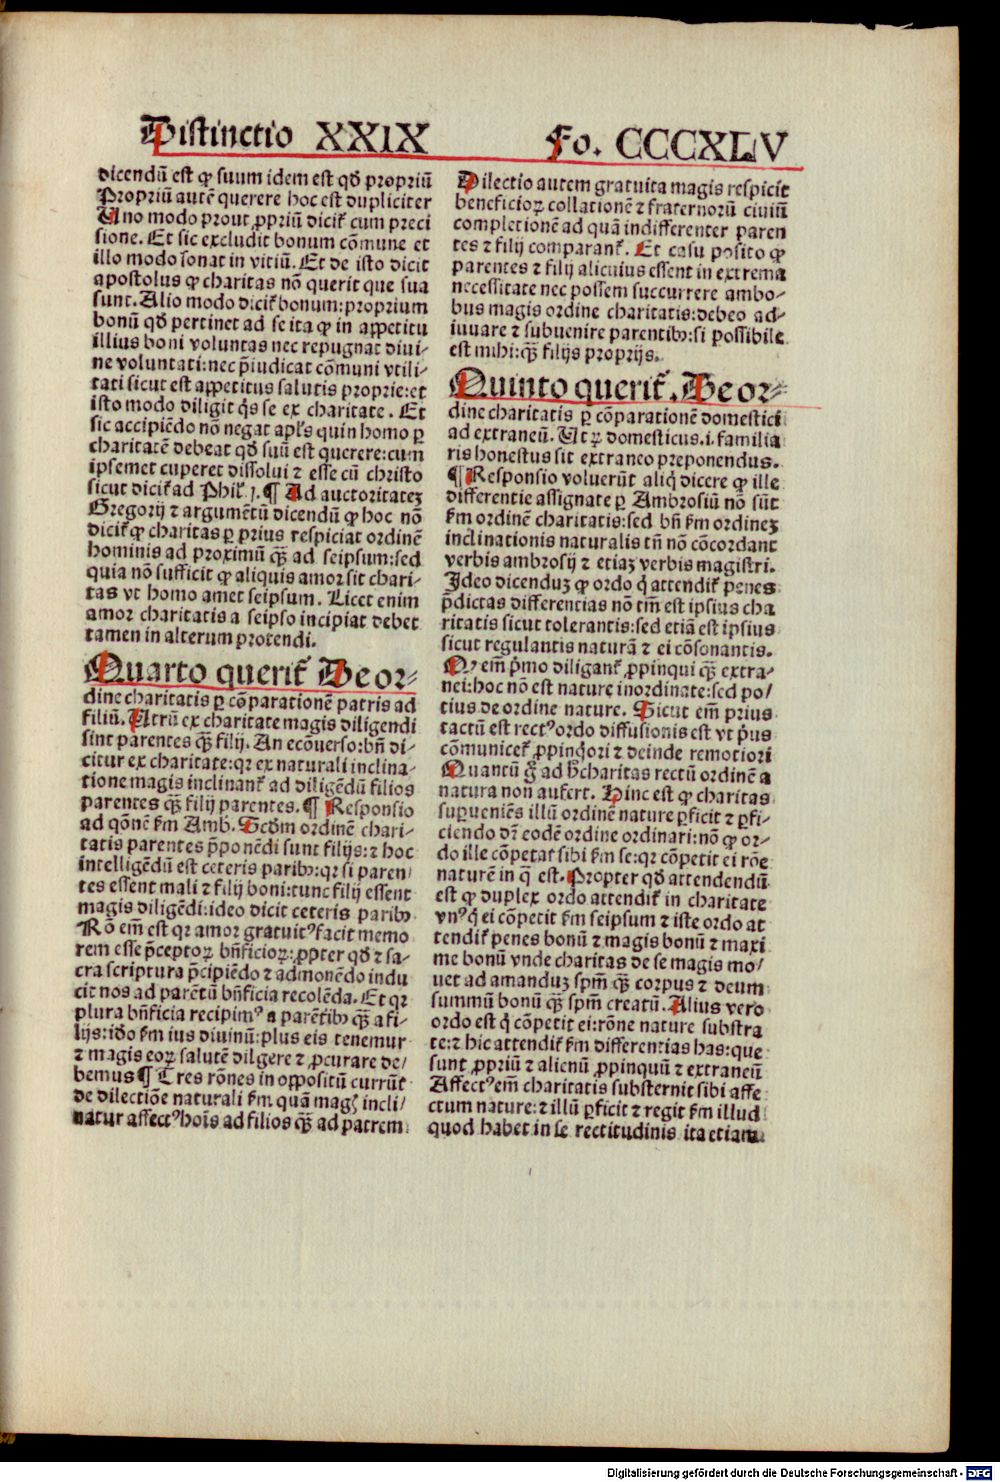 Distinctio XXIX
Fo. CCCXLV
dicendū est ꝙ suum idem est qđ propriū
Propriū autē querere hoc est dupliciter
Uno modo prout ꝓpriū dicit̃ cum preci
sione. Et sic excludit bonum cōmune et
illo modo sonat in vitiū. Et de isto dicit
apostolus ꝙ charitas nō querit que sua
sunt. Alio modo dicit̃ bonum: proprium
bonū qđ pertinet ad se ita ꝙ in appetitu
illius boni voluntas nec repugnat diui⸗
ne voluntati: nec p̄iudicat cōmuni vtili⸗
tati sicut est appetitus salutis proprie: et
isto modo diligit q̇s se ex charitate. Et
sic accipiēdo nō negat apl̓s quin homo ꝑ
charitatē debeat qđ suū est querere: cum
ipsemet cuperet dissolui ⁊ esse cū christo
sicut dicit̃ ad Phil̓. j. ¶ Ad auctoritateꝫ
Gregorij ⁊ argumētū dicendū ꝙ hoc nō
dicit̃ ꝙ charitas ꝑ prius respiciat ordinē
hominis ad proximū q̃ꝫ ad seipsum: sed
quia nō sufficit ꝙ aliquis amor sit chari⸗
tas vt homo amet seipsum. Licet enim
amor charitatis a seipso incipiat debet
tamen in alterum protendi.
Quarto querit̃. De or⸗
dine charitatis ꝑ cōparationē patris ad
filiū. Utrū ex charitate magis diligendi
sint parentes q̃ꝫ filij. An ecōuerso: bn̄ di⸗
citur ex charitate: qr ex naturali inclina⸗
tione magis inclinant̃ ad diligēdū filios
parentes q̃ꝫ filij parentes. ¶ Responsio
ad qōnē ẜm Amb. Scđm ordinē chari⸗
tatis parentes p̄ponēdi sunt filijs: ⁊ hoc
intelligēdū est ceteris paribꝫ: qr si paren⸗
tes essent mali ⁊ filij boni: tunc filij essent
magis diligēdi: ideo dicit ceteris paribꝫ
Rō em̄ est qr amor gratuitꝰ facit memo
rem esse p̄ceptoꝝ bn̄ficioꝝ: ꝓpter qđ ⁊ sa⸗
cra scriptura p̄cipiēdo ⁊ admonēdo indu
cit nos ad parētū bn̄ficia recolēda. Et qr
plura bn̄ficia recipimꝰ a parētibꝫ q̃ꝫ a fi⸗
lijs: iđo ẜm ius diuinū: plus eis tenemur
⁊ magis eoꝝ salutē diligere ⁊ ꝓcurare de⸗
bemus ¶ Tres rōnes in oppositū currūt
de dilectiōe naturali ẜm quā magꝭ incli⸗
natur affectꝰ hoīs ad filios q̃ꝫ ad patrem.
Dilectio autem gratuita magis respicit
beneficioꝝ collationē ⁊ fraternorū ciuiū
completionē ad quā indifferenter paren
tes ⁊ filij comparant̃. Et casu posito ꝙ
parentes ⁊ filij alicuius essent in extrema
necessitate nec possem succurrere ambo⸗
bus magis ordine charitatis: debeo ad⸗
iuuare ⁊ subuenire parentibꝫ: si possibile
est mihi: q̃ꝫ filijs proprijs.
Quinto querit̃. De or⸗
dine charitatis ꝑ cōparationē domestici
ad extraneū. Utꝝ domesticus. i. familia
ris honestus sit extraneo preponendus.
¶ Responsio voluerūt aliq̇ dicere ꝙ ille
differentie assignate ꝑ Ambrosiū nō sūt
ẜm ordinē charitatis: sed bn̄ ẜm ordineꝫ
inclinationis naturalis tn̄ nō cōcordant
verbis ambrosij ⁊ etiaꝫ verbis magistri.
Ideo dicenduꝫ ꝙ ordo q̇ attendit̃ penes
p̄dictas differentias nō tm̄ est ipsius cha
ritatis sicut tolerantis: sed etiā est ipsius
sicut regulantis naturā ⁊ ei cōsonantis.
Qꝫ em̄ p̄mo diligant̃ ꝓpinqui q̃ꝫ extra⸗
nei: hoc nō est nature inordinate: sed po⸗
tius de ordine nature. Sicut em̄ prius
tactū est rectꝰ ordo diffusionis est vt p̓us
cōmunicet̃ ꝓpinq̇ori ⁊ deinde remotiori
Quantū g̊ ad h̄ charitas rectū ordinē a
natura non aufert. Hinc est ꝙ charitas
suꝑueniēs illū ordinē nature ꝑficit ⁊ ꝑfi⸗
ciendo dr̄ eodē ordine ordinari: nō ꝙ or⸗
do ille cōpetat sibi ẜm se: qr cōpetit ei rōe
naturē in q̄ est. Propter qđ attendendū
est ꝙ duplex ordo attendit̃ in charitate
vnꝰ q̇ ei cōpetit ẜm seipsum ⁊ iste ordo at
tendit̃ penes bonū ⁊ magis bonū ⁊ maxi
me bonū vnde charitas de se magis mo⸗
uet ad amanduꝫ spm̄ q̃ꝫ corpus ⁊ deum
summū bonū q̃ꝫ spm̄ creatū. Alius vero
ordo est q̇ cōpetit ei: rōne nature substra
te: ⁊ hic attendit̃ ẜm differentias has: que
sunt ꝓpriū ⁊ alienū ꝓpinquū ⁊ extraneū
Affectꝰ em̄ charitatis substernit sibi affe
ctum nature: ⁊ illū ꝑficit ⁊ regit ẜm illud
quod habet in se rectitudinis ita etiam.
Digitalisierung gefördert durch die Deutsche Forschungsgemeinschaft - DFG